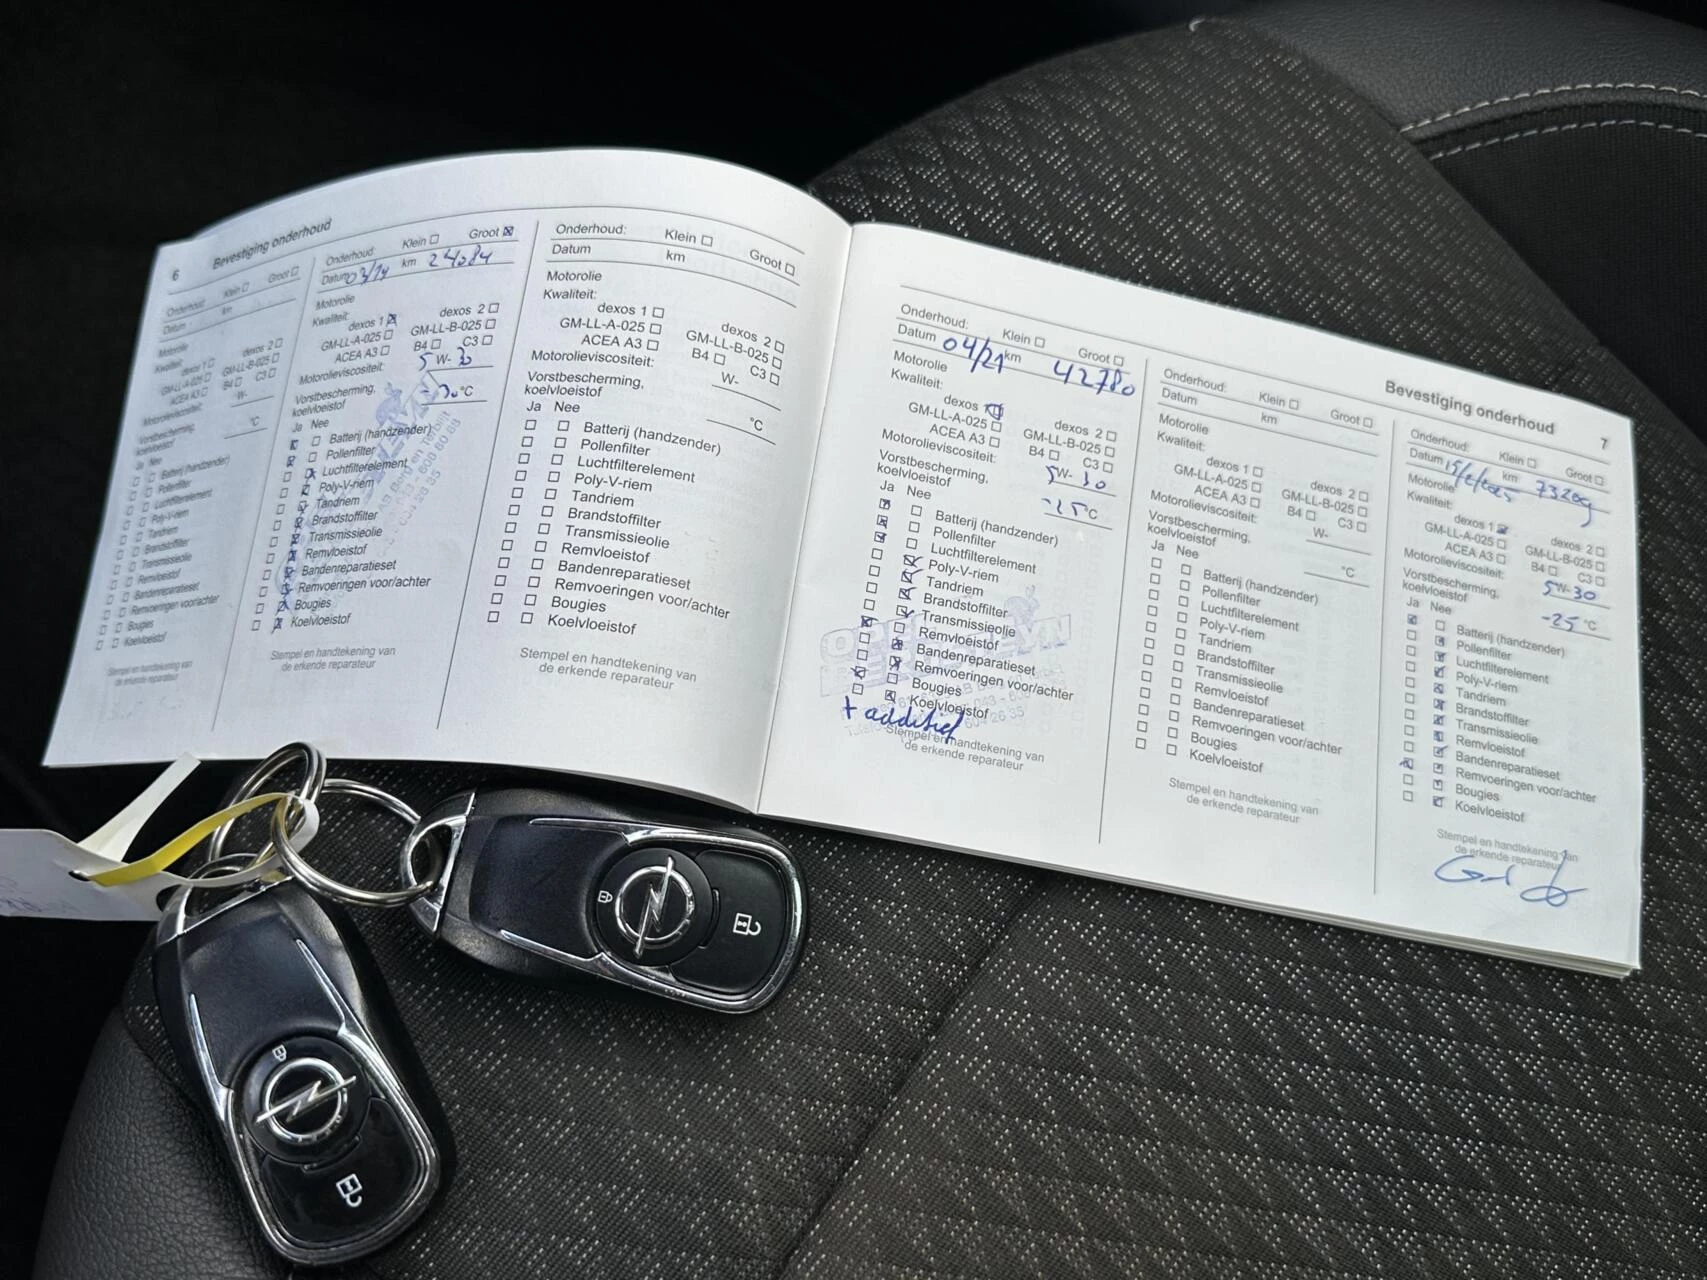 6 Bevestiging onderhoud
Onderhoud: Klein Groot
Datum km
Motorolie
Kwaliteit:
dexos 1 dexos 2
GM-LL-A-025 GM-LL-B-025
ACEA A3 B4 C3
Motorolieviscositeit: W-
Vorstbescherming,
koelvloeistof °C
Ja Nee
Batterij (handzender)
Pollenfilter
Luchtfilterelement
Poly-V-riem
Tandriem
Brandstoffilter
Transmissieolie
Remvloeistof
Bandenreparatieset
Remvoeringen voor/achter
Bougies
Koelvloeistof
Stempel en handtekening van
de erkende reparateur
Onderhoud: Klein Groot
Datum 03/19 km 24084
Motorolie
Kwaliteit:
dexos 1 dexos 2
GM-LL-A-025 GM-LL-B-025
ACEA A3 B4 C3
Motorolieviscositeit: 5 W- 30
Vorstbescherming,
koelvloeistof -30 °C
Ja Nee
Batterij (handzender)
Pollenfilter
Luchtfilterelement
Poly-V-riem
Tandriem
Brandstoffilter
Transmissieolie
Remvloeistof
Bandenreparatieset
Remvoeringen voor/achter
Bougies
Koelvloeistof
Stempel en handtekening van
de erkende reparateur
Onderhoud: Klein Groot
Datum km
Motorolie
Kwaliteit:
dexos 1 dexos 2
GM-LL-A-025 GM-LL-B-025
ACEA A3 B4 C3
Motorolieviscositeit: W-
Vorstbescherming,
koelvloeistof °C
Ja Nee
Batterij (handzender)
Pollenfilter
Luchtfilterelement
Poly-V-riem
Tandriem
Brandstoffilter
Transmissieolie
Remvloeistof
Bandenreparatieset
Remvoeringen voor/achter
Bougies
Koelvloeistof
Stempel en handtekening van
de erkende reparateur
Bevestiging onderhoud 7
Onderhoud: Klein Groot
Datum 04/21 km 42780
Motorolie
Kwaliteit:
dexos 1 dexos 2
GM-LL-A-025 GM-LL-B-025
ACEA A3 B4 C3
Motorolieviscositeit: 5 W- 30
Vorstbescherming,
koelvloeistof -25 °C
Ja Nee
Batterij (handzender)
Pollenfilter
Luchtfilterelement
Poly-V-riem
Tandriem
Brandstoffilter
Transmissieolie
Remvloeistof
Bandenreparatieset
Remvoeringen voor/achter
Bougies
Koelvloeistof
+ additief
OPEL
Stempel en handtekening van
de erkende reparateur
Onderhoud: Klein Groot
Datum km
Motorolie
Kwaliteit:
dexos 1 dexos 2
GM-LL-A-025 GM-LL-B-025
ACEA A3 B4 C3
Motorolieviscositeit: W-
Vorstbescherming,
koelvloeistof °C
Ja Nee
Batterij (handzender)
Pollenfilter
Luchtfilterelement
Poly-V-riem
Tandriem
Brandstoffilter
Transmissieolie
Remvloeistof
Bandenreparatieset
Remvoeringen voor/achter
Bougies
Koelvloeistof
Stempel en handtekening van
de erkende reparateur
Onderhoud: Klein Groot
Datum km 73209
Motorolie
Kwaliteit:
dexos 1 dexos 2
GM-LL-A-025 GM-LL-B-025
ACEA A3 B4 C3
Motorolieviscositeit: 5 W- 30
Vorstbescherming,
koelvloeistof -25 °C
Ja Nee
Batterij (handzender)
Pollenfilter
Luchtfilterelement
Poly-V-riem
Tandriem
Brandstoffilter
Transmissieolie
Remvloeistof
Bandenreparatieset
Remvoeringen voor/achter
Bougies
Koelvloeistof
Stempel en handtekening van
de erkende reparateur